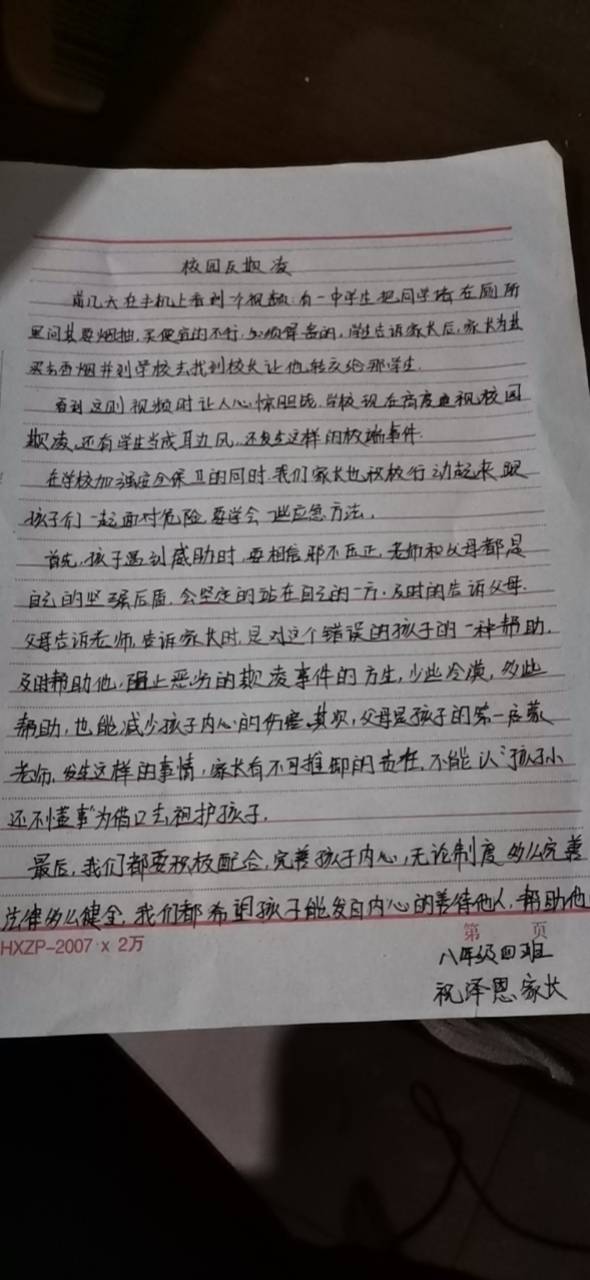 校园反欺凌
前几天在手机上看到个视频有一中学生把同学堵在厕所
里问其要烟抽,买便宜的不行,必须算好的,学生告诉家长后,家长为其
买东西烟并到学校去找到校长让他转交给那学生.
看到这则视频时让人心惊胆战,学校现在高度重视校园
欺凌,还有学生当成耳边风,还发生这样的极端事件.
在学校加强安全保卫的同时,我们家长也积极行动起来,跟
孩子们一起面对危险,要学会一些应急方法.
首先,孩子遇到威胁时,要相信邪不压正,老师和父母都是
自己的坚强后盾,会坚定的站在自己的一方.及时的告诉父母.
父母告诉老师,告诉家长时,是对这个错误的孩子的一种帮助.
及时帮助他,阻止恶劣的欺凌事件的方生,少些冷漠,多些
帮助,也能减少孩子内心的伤害.其次,父母是孩子的第一启蒙
老师,发生这样的事情,家长有不可推卸的责任,不能认“孩子小
还不懂事”为借口去袒护孩子.
最后,我们都要积极配合,完善孩子内心,无论制度多么完善
法律多么健全,我们都希望孩子能发自内心的善待他人,帮助他
HXZP-2007 × 2万
第 页
八年级四班
祝泽恩家长